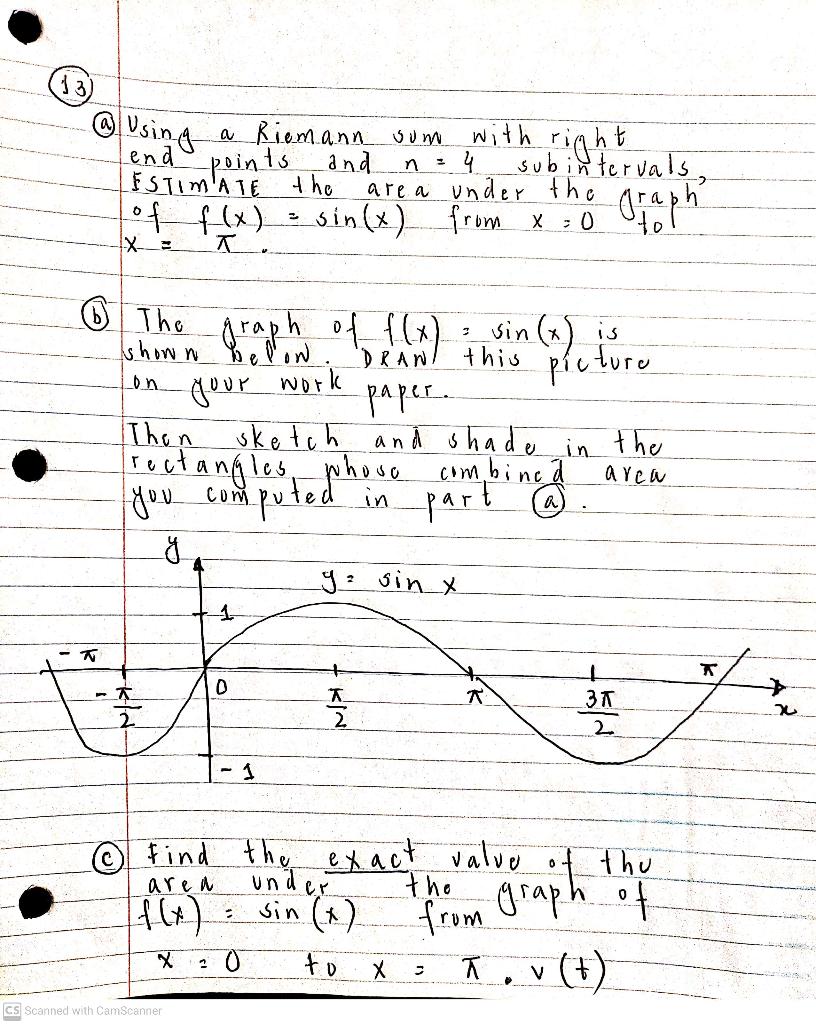 13
a Using a Riemann sum with right
end points and n = 4 subintervals,
ESTIMATE the area under the graph
of f(x) = sin(x) from x = 0 to
x = π.
b The graph of f(x) = sin(x) is
shown below. DRAW this picture
on your work paper.
Then sketch and shade in the
rectangles whose combined area
you computed in part a.
y
y = sin x
1
-π
-π/2
0
π/2
π
3π/2
π
x
-1
c Find the exact value of the
area under the graph of
f(x) = sin(x) from
x = 0 to x = π. v(t)
CS Scanned with CamScanner